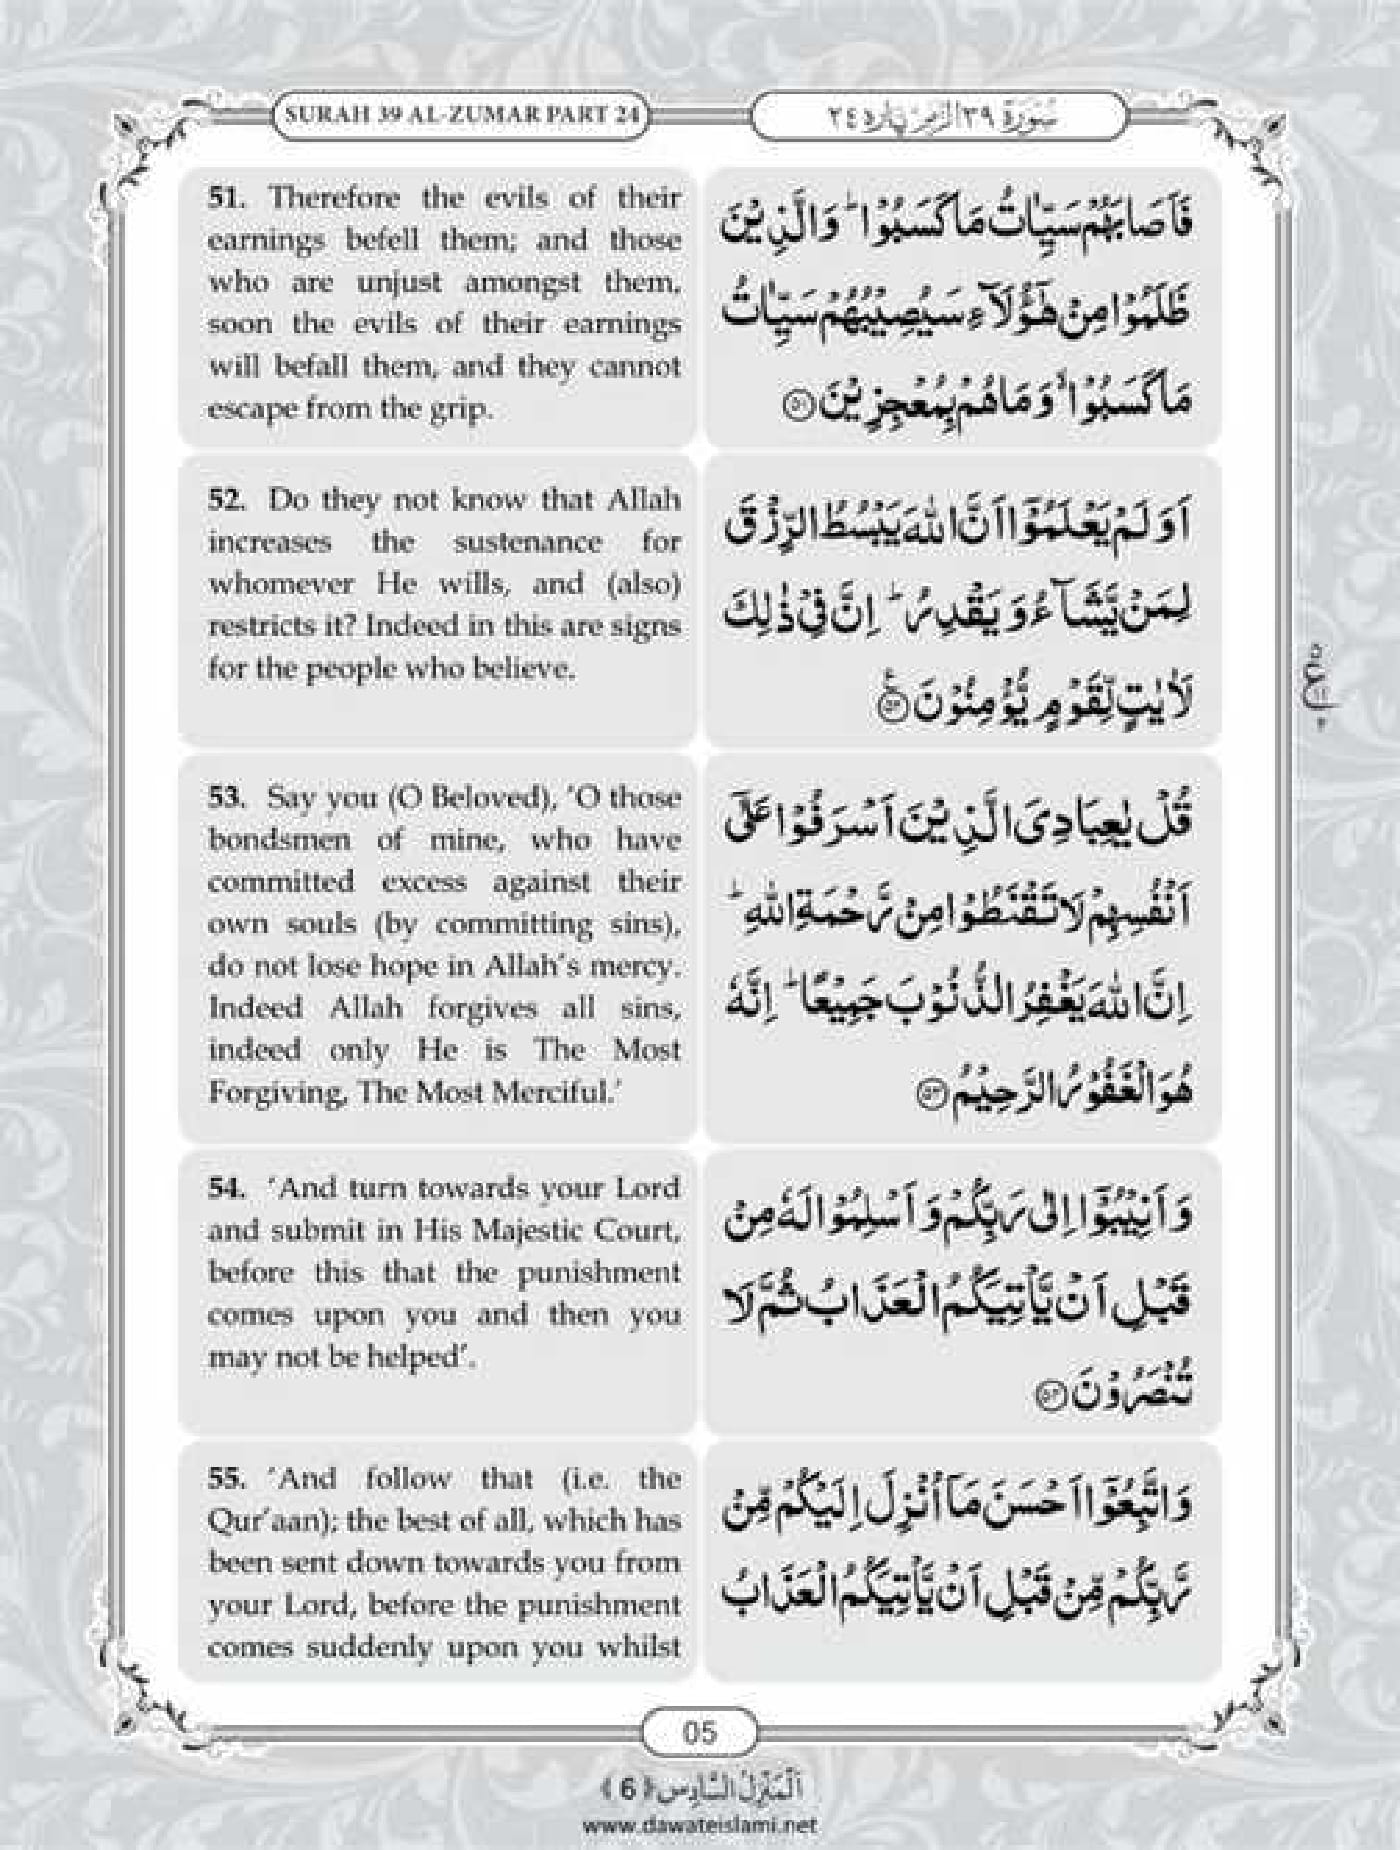 SURAH 39 AL-ZUMAR PART 24
سُوْرَة ٣٩ الزمر پاره ٢٤
51. Therefore the evils of their
earnings befell them; and those
who are unjust amongst them,
soon the evils of their earnings
will befall them, and they cannot
escape from the grip.
فَاَصَابَهُمْ سَيِّاٰتُ مَا كَسَبُوْا ؕ وَالَّذِيْنَ
ظَلَمُوْا مِنْ هٰٓؤُلَآءِ سَيُصِيْبُهُمْ سَيِّاٰتُ
مَا كَسَبُوْا ۙ وَمَا هُمْ بِمُعْجِزِيْنَ ﴿۵۱﴾
52. Do they not know that Allah
increases the sustenance for
whomever He wills, and (also)
restricts it? Indeed in this are signs
for the people who believe.
اَوَلَمْ يَعْلَمُوْٓا اَنَّ اللّٰهَ يَبْسُطُ الرِّزْقَ
لِمَنْ يَّشَآءُ وَيَقْدِرُ ؕ اِنَّ فِيْ ذٰلِكَ
لَاٰيٰتٍ لِّقَوْمٍ يُّؤْمِنُوْنَ ﴿۵۲﴾
53. Say you (O Beloved), ‘O those
bondsmen of mine, who have
committed excess against their
own souls (by committing sins),
do not lose hope in Allah’s mercy.
Indeed Allah forgives all sins,
indeed only He is The Most
Forgiving, The Most Merciful.’
قُلْ يٰعِبَادِيَ الَّذِيْنَ اَسْرَفُوْا عَلٰٓى
اَنْفُسِهِمْ لَا تَقْنَطُوْا مِنْ رَّحْمَةِ اللّٰهِ ؕ
اِنَّ اللّٰهَ يَغْفِرُ الذُّنُوْبَ جَمِيْعًا ؕ اِنَّهٗ
هُوَ الْغَفُوْرُ الرَّحِيْمُ ﴿۵۳﴾
54. ‘And turn towards your Lord
and submit in His Majestic Court,
before this that the punishment
comes upon you and then you
may not be helped’.
وَاَنِيْبُوْٓا اِلٰى رَبِّكُمْ وَاَسْلِمُوْا لَهٗ مِنْ
قَبْلِ اَنْ يَّاْتِيَكُمُ الْعَذَابُ ثُمَّ لَا
تُنْصَرُوْنَ ﴿۵۴﴾
55. ‘And follow that (i.e. the
Qur’aan); the best of all, which has
been sent down towards you from
your Lord, before the punishment
comes suddenly upon you whilst
وَاتَّبِعُوْٓا اَحْسَنَ مَآ اُنْزِلَ اِلَيْكُمْ مِّنْ
رَّبِّكُمْ مِّنْ قَبْلِ اَنْ يَّاْتِيَكُمُ الْعَذَابُ
05
اَلْمَنْزِلُ السَّادِس ﴿6﴾
www.dawateislami.net